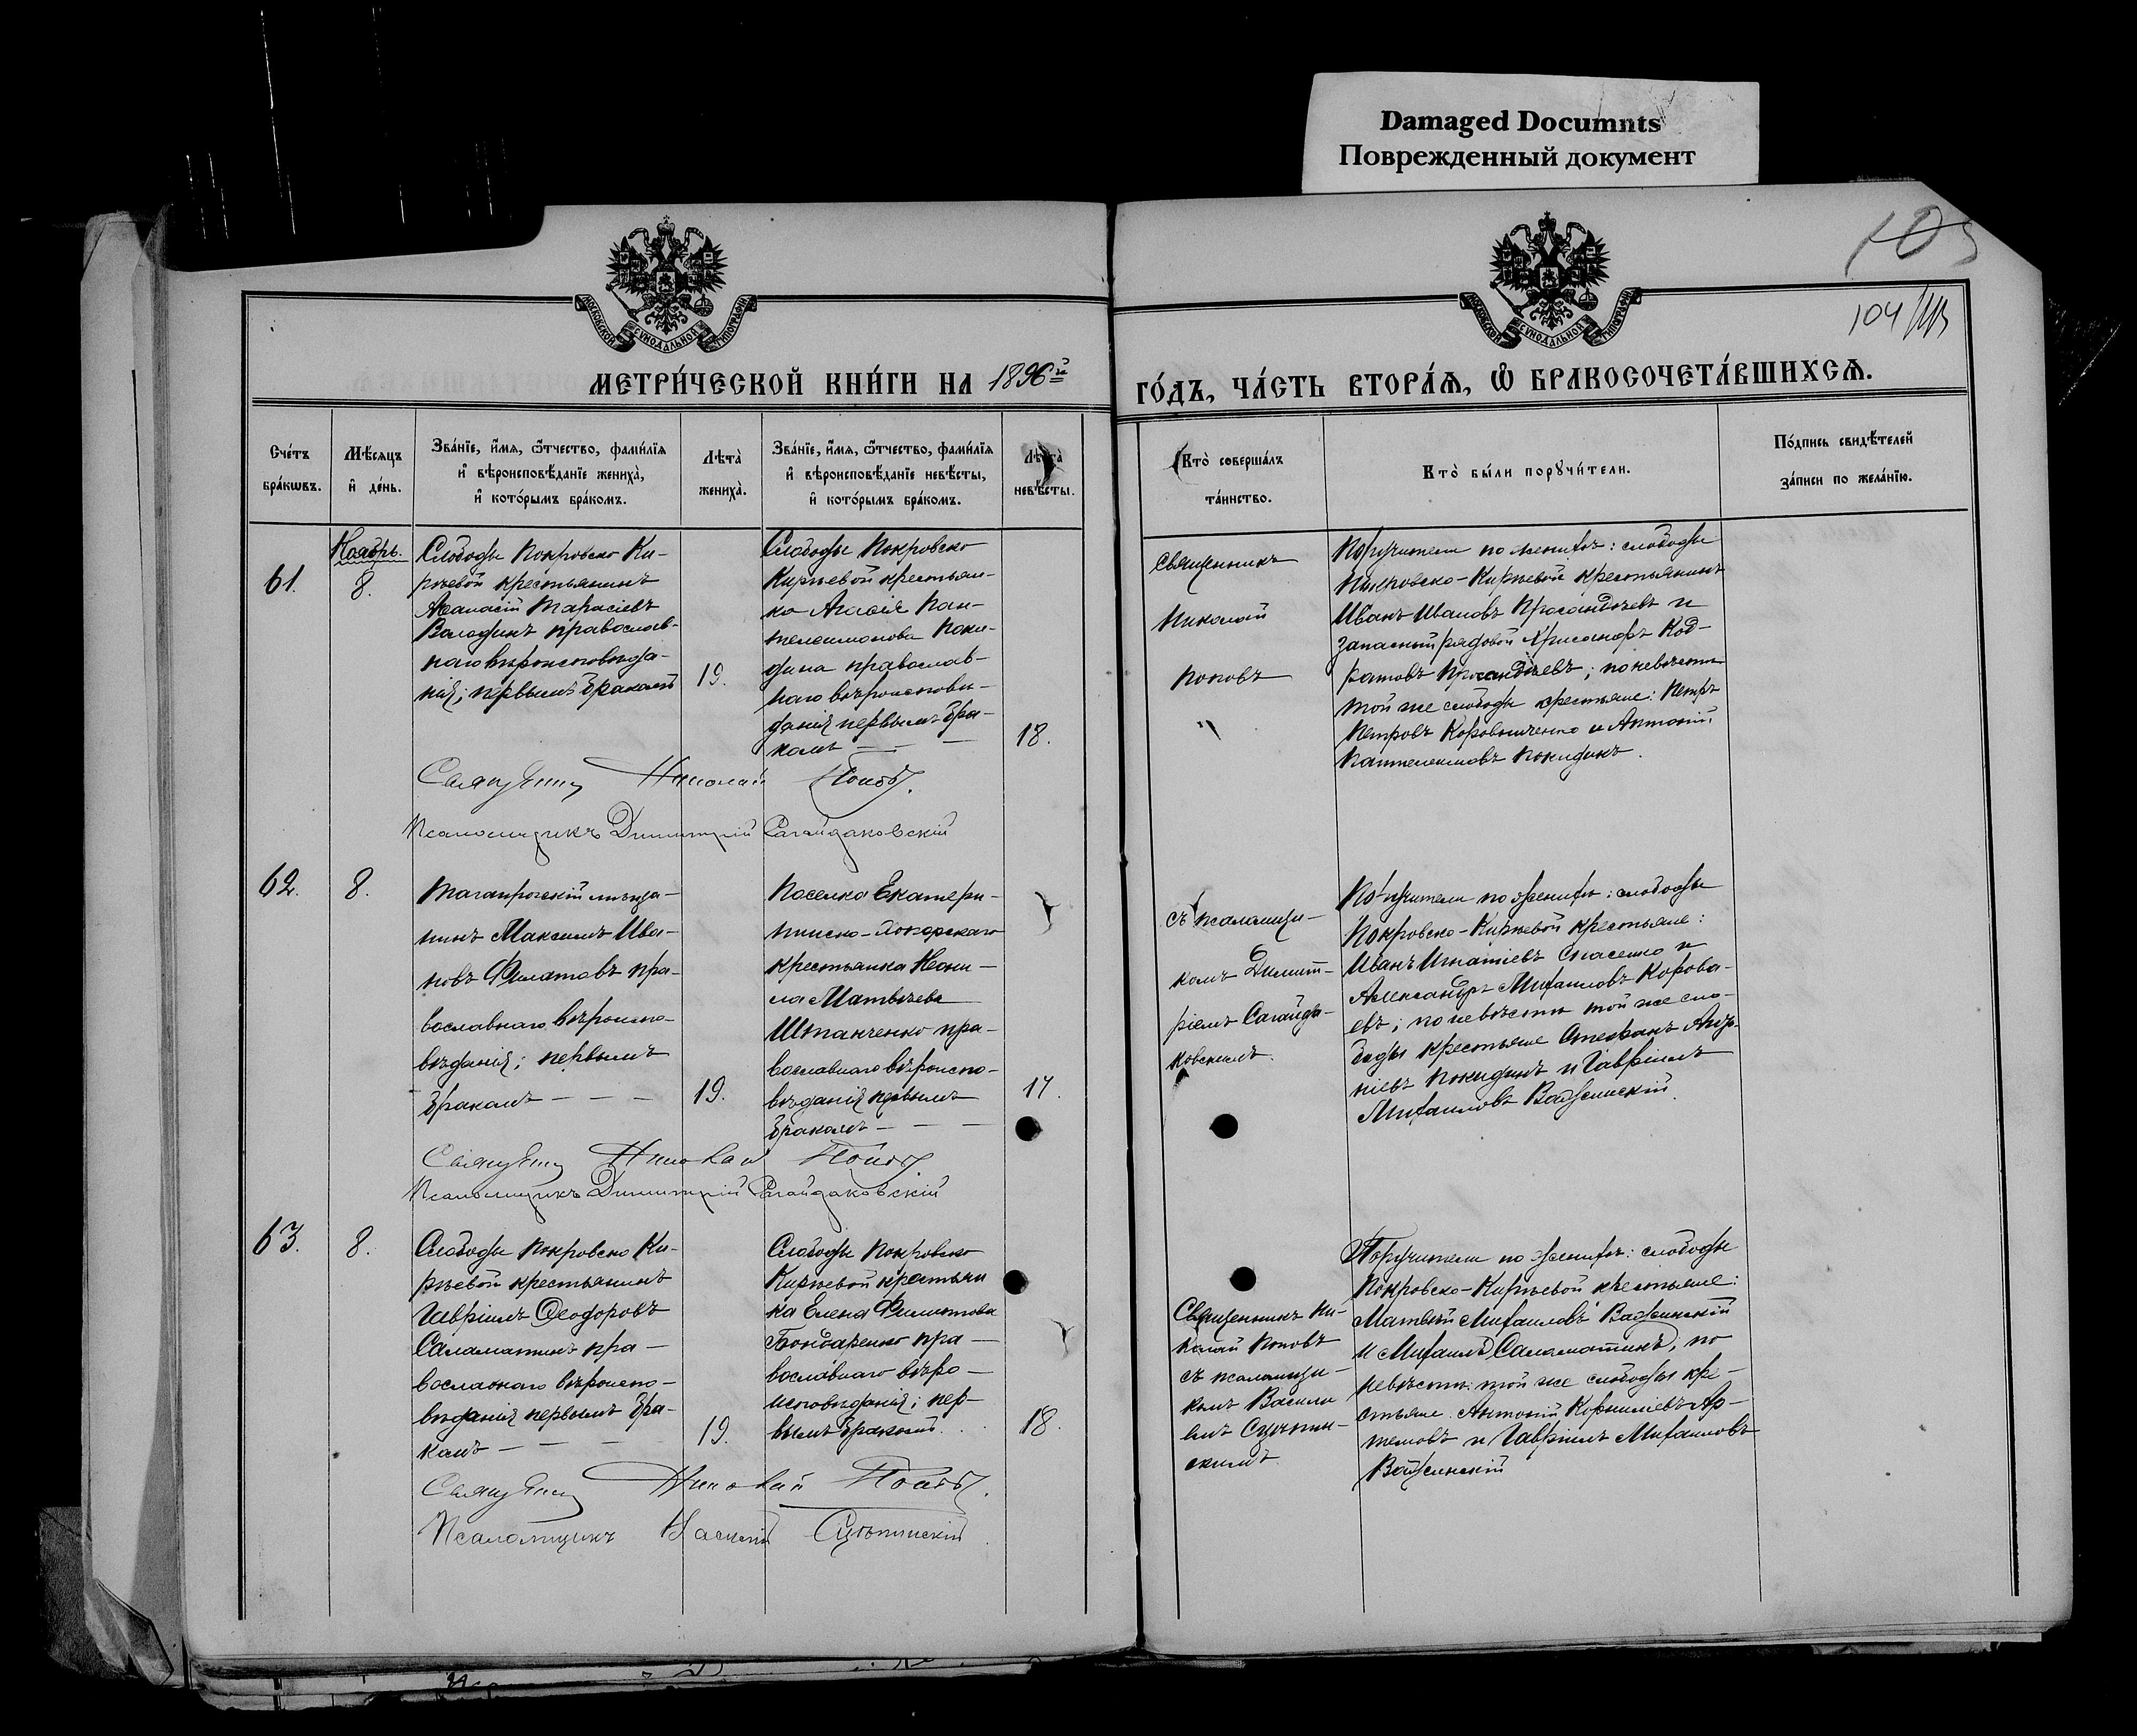 Damaged Documnts
Поврежденный документ
104
МОСКОВСКОЙ СУНОДАЛЬНОЙ ТИПОГРАФІИ
МОСКОВСКОЙ СУНОДАЛЬНОЙ ТИПОГРАФІИ
МЕТРИ́ЧЕСКОЙ КНИ́ГИ НА 1896й ГО́ДЪ, ЧА́СТЬ ВТОРА́Ѧ, Ѽ БРАКОСОЧЕТА́ВШИХСѦ.
Сче́тъ
бра́кѡвъ.
Мѣ́сѧцъ
и҆ де́нь.
Зва́нїе, и҆́мѧ, ѻ҆́тчество, фами́лїѧ
и҆ вѣроисповѣ́данїе жениха̀,
и҆ кото́рымъ бра́комъ.
Лѣта̀
жениха̀.
Зва́нїе, и҆́мѧ, ѻ҆́тчество, фами́лїѧ
и҆ вѣроисповѣ́данїе невѣ́сты,
и҆ кото́рымъ бра́комъ.
Лѣта̀
невѣ́сты.
Кто̀ соверша́лъ
та́инство.
Кто̀ бы́ли порꙋчи́тели.
По́дпись свидѣ́телей
за́писи по жела́нїю.
61.
Ноябрь.
8.
Слободы Покровско Ки-
рѣевой крестьянинъ
Аѳанасій Тарасіевъ
Володинъ православ-
наго вѣроисповѣда-
нія; первымъ бракомъ
19.
Слободы Покровско
Кирѣевой крестьян-
ка Агаѳія Пан-
телеимонова Поки-
дина православ-
наго вѣроисповѣ-
данія первымъ бра-
комъ — —
18.
Священникъ
Николай
Поповъ
Поручители по женихѣ: слободы
Покровско-Кирѣевой крестьянинъ
Иванъ Ивановъ и
запасный рядовой Хрисанфъ Код-
ратовъ ; по невѣстѣ
той же слободы крестьяне: Петръ
Петровъ и Антоній
Пантелеимовъ Покидинъ.
Священникъ Николай Поповъ.
Псаломщикъ Димитрій Сагайдаковскій
62.
8.
Таганрогскій мѣща-
нинъ Максимъ Ива-
новъ Филатовъ пра-
вославнаго вѣроиспо-
вѣданія; первымъ
бракомъ — — —
19.
Поселка Екатери-
нинско-
крестьянка Неони-
ла Матвѣева
Штанченко пра-
вославнаго вѣроиспо-
вѣданія первымъ
бракомъ — — —
17.
съ псаломщи-
комъ Димит-
ріемъ Сагайда-
ковскимъ.
Поручители по женихѣ: слободы
Покровско-Кирѣевой крестьяне:
Иванъ Игнатіевъ и
Александръ Михаиловъ Корова-
евъ; по невѣстѣ той же сло-
боды крестьяне Стефанъ
Покидинъ и Гавріилъ
Михаиловъ Важинскій.
Священникъ Николай Поповъ.
Псаломщикъ Димитрій Сагайдаковскій
63.
8.
Слободы Покровско Ки-
рѣевой крестьянинъ
Гавріилъ Ѳеодоровъ
Саламатинъ пра-
вославнаго вѣроиспо-
вѣданія первымъ бра-
комъ — — —
19.
Слободы Покровско
Кирѣевой крестьян
ка Елена Филиппова
Бондаренко пра-
вославнаго вѣро-
исповѣданія; пер-
вымъ бракомъ.
18.
Священникъ Ни-
колай Поповъ
съ псаломщи-
комъ Васили
емъ
скимъ
Поручители по женихѣ: слободы
Покровско-Кирѣевой крестьяне:
Матвѣй Михаиловъ Важинскій
и Михаилъ Саламатинъ; по
невѣстѣ: той же слободы кре-
стьяне Антоній Корниліевъ Ар-
темовъ и Гавріилъ Михаиловъ
Важинскій
Священникъ Николай Поповъ.
Псаломщикъ Василій